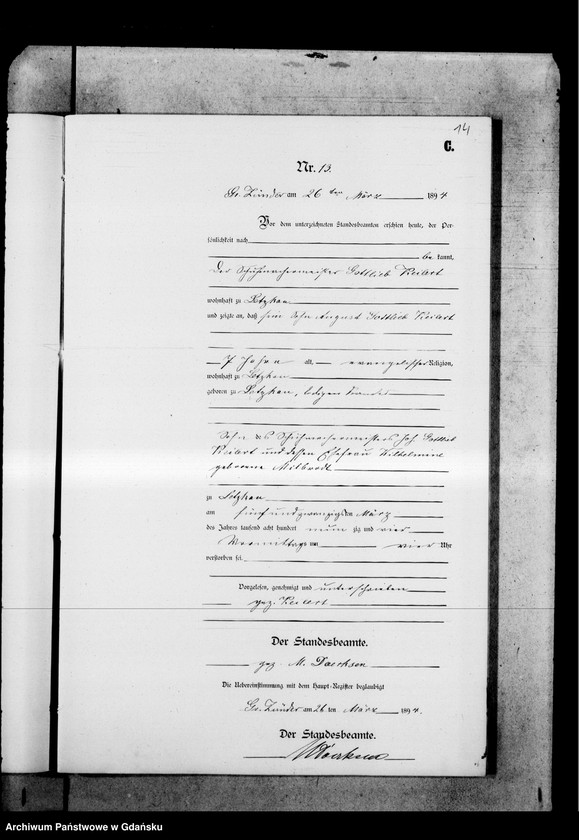 14
C.
Nr. 13.
Gr. Zünder am 26 ten März 1894
Vor dem unterzeichneten Standesbeamten erschien heute, der Per-
sönlichkeit nach
be kannt,
Der Schuhmachermeister Gottlieb Keiart
wohnhaft zu Letzkau
und zeigte an, daß sein Sohn August Gottlieb Keiart
7 Jahre alt, evangelischer Religion,
wohnhaft zu Letzkau
geboren zu Letzkau, ledigen Standes
Sohn des Schuhmachermeisters Joh. Gottlieb
Keiart und dessen Ehefrau Wilhelmine
geborene Milbrodt
zu Letzkau
am fünfundzwanzigsten März
des Jahres tausend acht hundert neunzig und vier
Vormittags um vier Uhr
verstorben sei.
Vorgelesen, genehmigt und unterschrieben
gez. Keiart
Der Standesbeamte.
gez M. Doerksen
Die Uebereinstimmung mit dem Haupt-Register beglaubigt
Gr. Zünder am 26 ten März 1894.
Der Standesbeamte.
MDoerksen
Archiwum Państwowe w Gdańsku